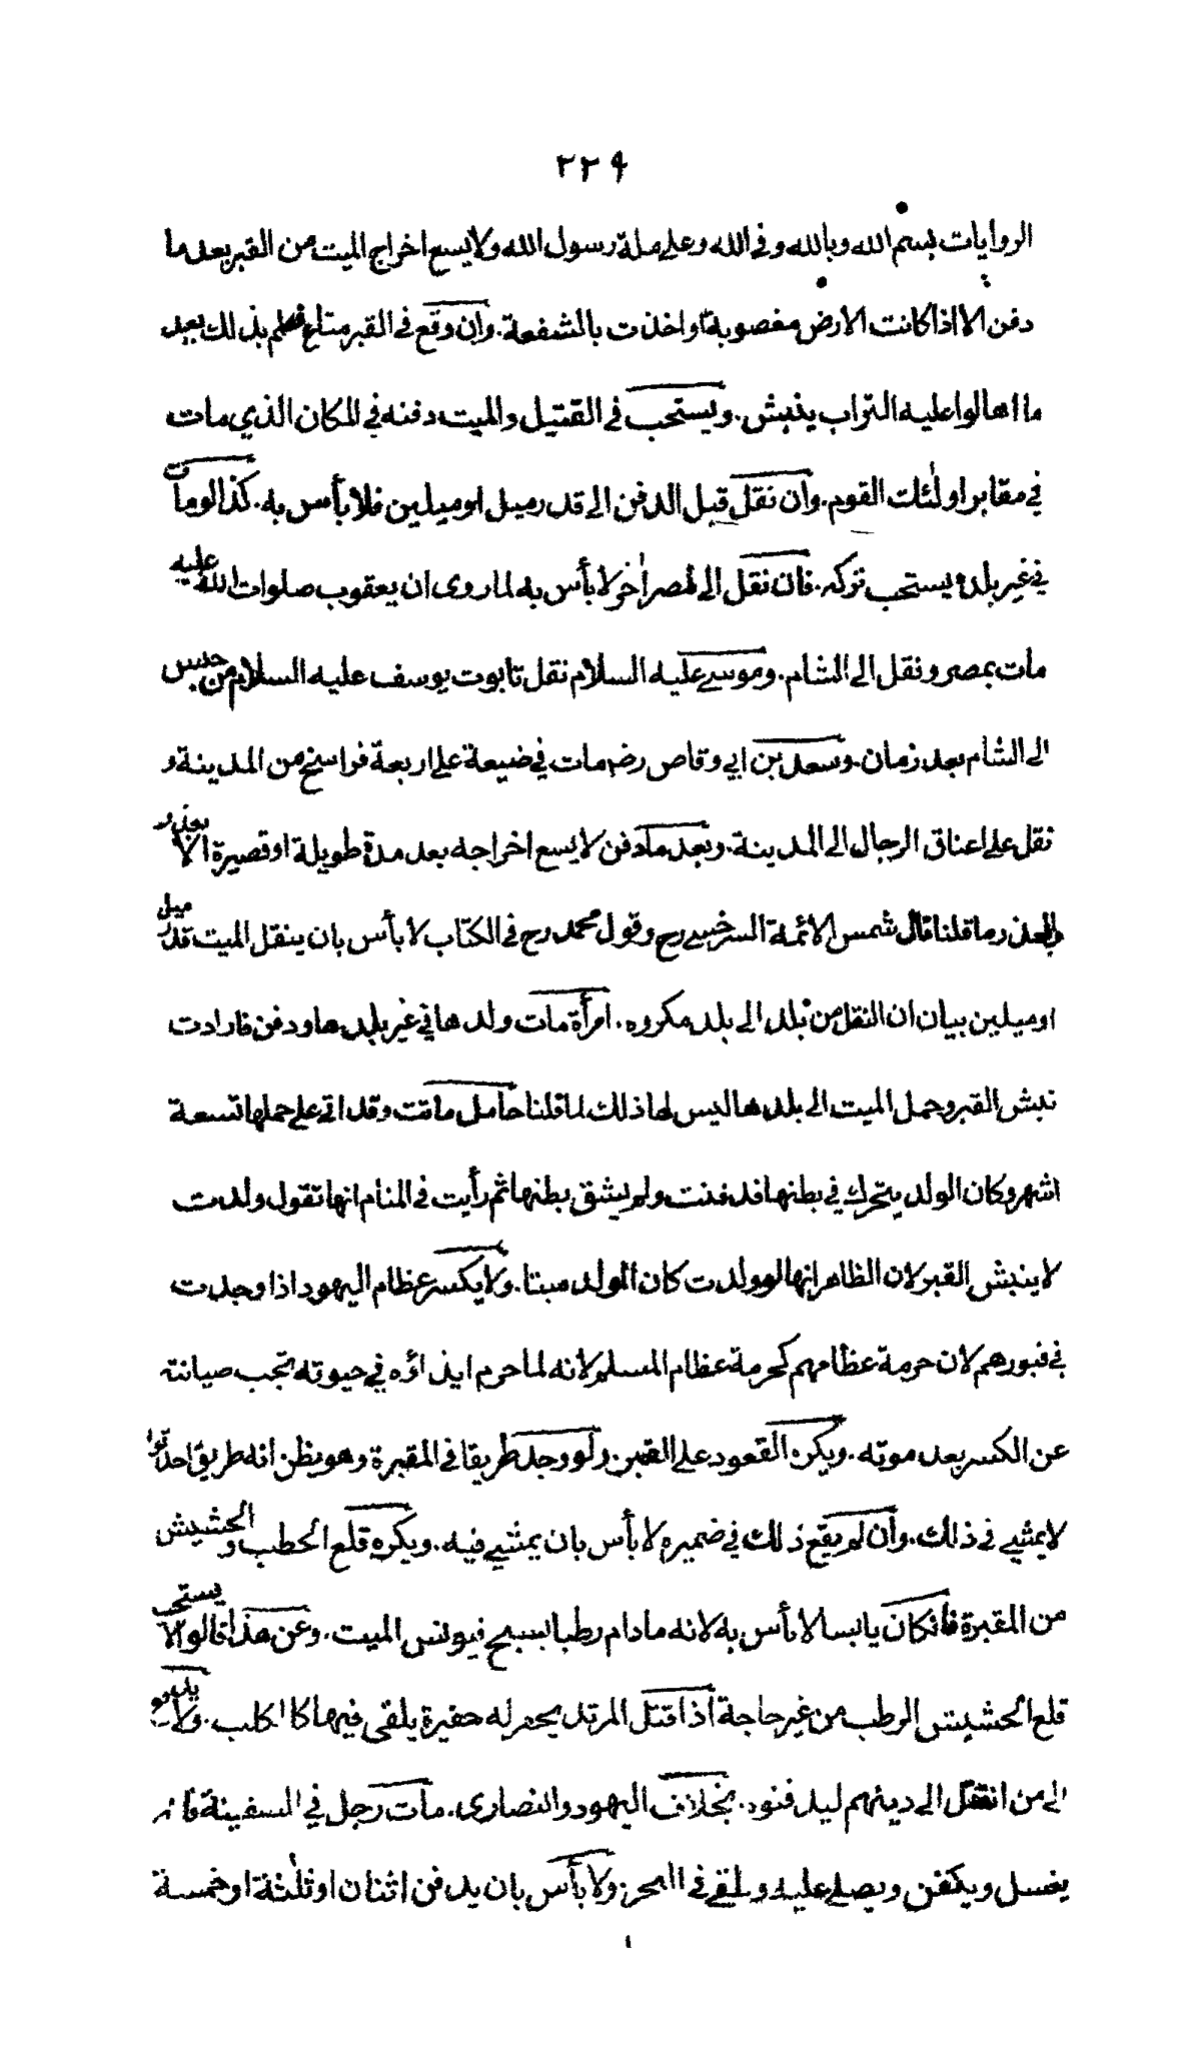 ٢٢٩
الروايات بسم الله وبالله وفى الله وعلى ملة رسول الله ولا يسع اخراج الميت من القبر بعد ما
دفن الا اذا كانت الارض مغصوبة او اخذت بالشفعة. وان وقع فى القبر متاع فعلم بذلك بعد
ما اهالوا عليه التراب ينبش. ويستحب فى القتيل والميت دفنه في المكان الذي مات
في مقابر اولٰئك القوم. وان نقل قبل الدفن الى قدر ميل او ميلين فلا بأس به. كذا لو مات
في غير بلده يستحب تركه. فان نقل الى مصر اٰخر لا بأس به لما روى ان يعقوب صلوات الله عليه
مات بمصر ونقل الى الشام. وموسى عليه السلام نقل تابوت يوسف عليه السلام من
الى الشام بعد زمان. وسعد بن ابي وقاص رضـ مات في ضيعة على اربعة فراسخ من المدينة و
نقل على اعناق الرجال الى المدينة. وبعد ما دفن لا يسع اخراجه بعد مدة طويلة او قصيرة الا بعذر
والعذر ما قلنا قال شمس الائمة السرخسى رح وقول محمد رح فى الكتاب لا بأس بان ينقل الميت قدر ميل
او ميلين بيان ان النقل من بلد الى بلد مكروه. امرأة مات ولدها في غير بلدها ودفن فارادت
نبش القبر وحمل الميت الى بلدها ليس لها ذلك لما قلنا حامل ماتت وقد اتى على حملها تسعة
اشهر وكان الولد يتحرك في بطنها فدفنت ولم يشق بطنها ثم رأيت فى المنام انها تقول ولدت
لا ينبش القبر لان الظاهر انها لو ولدت كان المولد ميتا. ولا يكسر عظام اليهود اذا وجدت
في قبورهم لان حرمة عظامهم كحرمة عظام المسلم لانه لما حرم ايذاؤه في حيوته تجب صيانته
عن الكسر بعد موته. ويكره القعود على القبر. ولو وجد طريقا فى المقبرة وهو يظن انه طريق احدثوا
لا يمشي فى ذلك. وان لم يقع ذلك في ضميره لا بأس بان يمشي فيه. ويكره قلع الحطب والحشيش
من المقبرة فان كان يابسا لا بأس به لانه ما دام رطبا يسبح فيونس الميت. وعن هذا قالوا لا يستحب
قلع الحشيش الرطب من غير حاجة اذا قتل المرتد يحفر له حفيرة يلقى فيها كالكلب. ولا
الى من انتقل الى دينهم ليدفنوه. بخلاف اليهود والنصارى. مات رجل في السفينة فانه
يغسل ويكفن ويصلى عليه ويلقى فى البحر. ولا بأس بان يدفن اثنان او ثلٰثة او خمسة